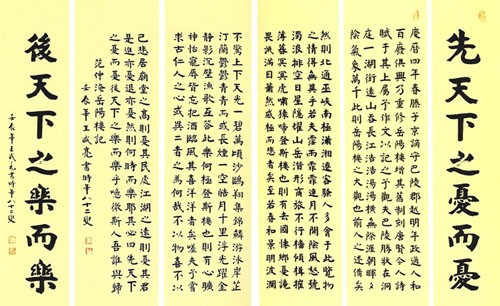 先天下之憂而憂
慶曆四年春滕子京謫守巴陵郡越明年政通人和
百廢俱興乃重修岳陽樓增其舊制刻唐賢今人詩
賦于其上屬予作文以記之予觀夫巴陵勝狀在洞
庭一湖銜遠山吞長江浩浩湯湯橫無際涯朝暉夕
陰氣象萬千此則岳陽樓之大觀也前人之述備矣
然則北通巫峽南極瀟湘遷客騷人多會于此覽物
之情得無異乎若夫霪雨霏霏連月不開陰風怒號
濁浪排空日星隱燿山岳潛形商旅不行檣傾楫摧
薄暮冥冥虎嘯猿啼登斯樓也則有去國懷鄉憂讒
畏譏滿目蕭然感極而悲者矣至若春和景明波瀾
不驚上下天光一碧萬頃沙鷗翔集錦鱗游泳岸芷
汀蘭鬱鬱青青而或長煙一空皓月千里浮光躍金
靜影沉璧漁歌互答此樂何極登斯樓也則有心曠
神怡寵辱皆忘把酒臨風其喜洋洋者矣嗟夫予嘗
求古仁人之心或異二者之為何哉不以物喜不以
己悲居廟堂之高則憂其民處江湖之遠則憂其君
是進亦憂退亦憂然則何時而樂耶其必曰先天下
之憂而憂後天下之樂而樂乎噫微斯人吾誰與歸
范仲淹岳陽樓記
壬辰年王武亮書時年八十三叟
後天下之樂而樂
壬辰年王武亮書時年八十三叟